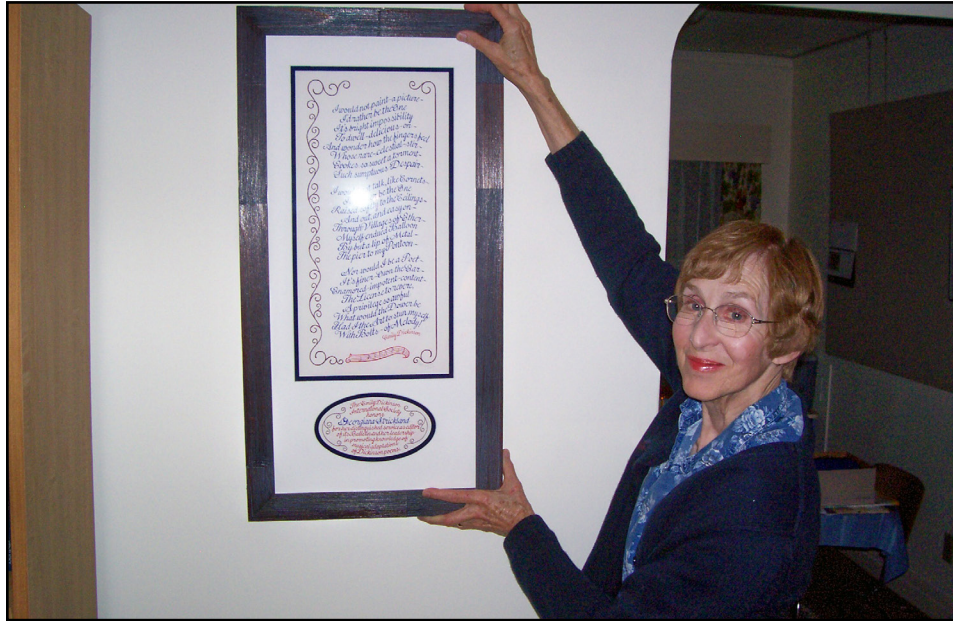 I would not paint - a picture -
I'd rather be the One
It's bright impossibility
To dwell - delicious - on -
And wonder how the fingers feel
Whose rare - celestial - stir -
Evokes so sweet a torment -
Such sumptuous Despair -
I would not talk, like Cornets -
be the One
Raised to the Ceilings -
And out, and easy on -
Through Villages of Ether -
Myself endued Balloon
By but a lip of Metal -
The pier to my Pontoon -
Nor would I be a Poet -
It's finer - own the Ear -
Enamored - impotent - content -
The License to revere,
A privilege so awful
What would the Dower be,
Had I the Art to stun myself
With Bolts - of Melody!
Emily Dickinson
The Emily Dickinson
International Society
honors
Georgiana Strickland
for her distinguished service as editor
of its Bulletin and her leadership
in promoting knowledge of
musical adaptations
of Dickinson poems